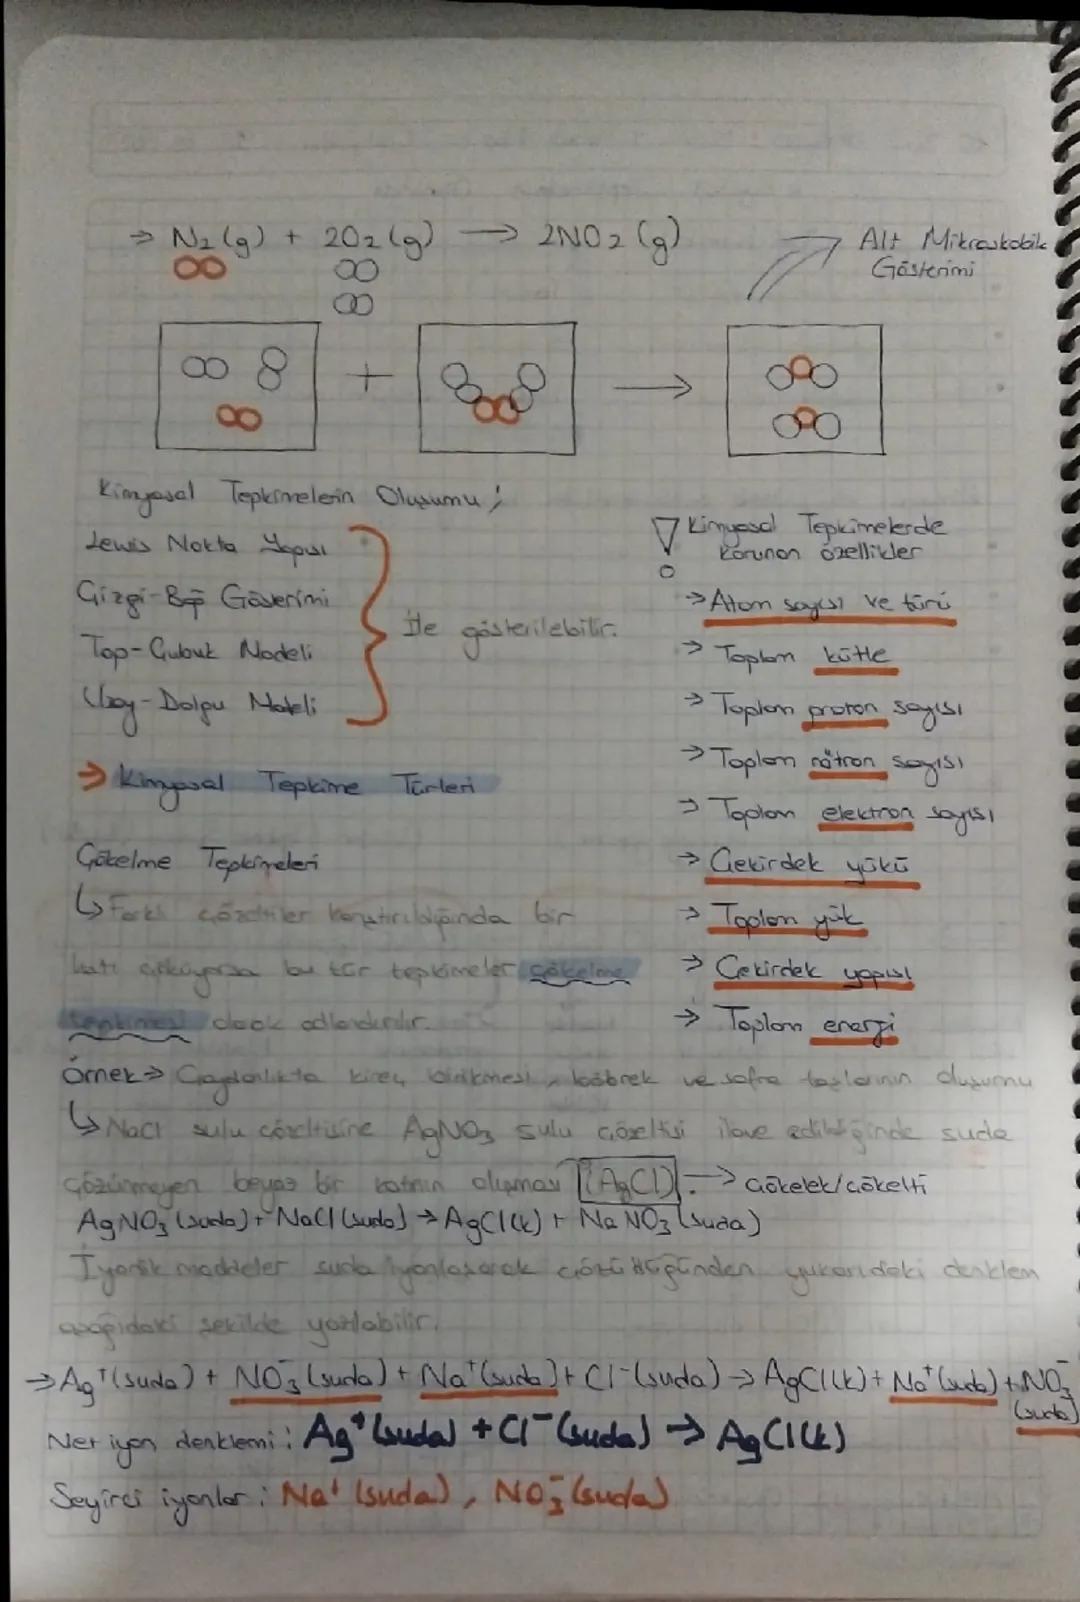 → N₂(g) + 2O₂(g) → 2NO₂(g)
Alt Mikroskobik
Gösterimi
+ →
Kimyasal Tepkimelerin Oluşumu;
Lewis Nokta Yapısı
Çizgi-Bağ Gösterimi
Top-Çubuk Modeli
Uzay-Dolgu Modeli
ile gösterilebilir.
! Kimyasal Tepkimelerde
Korunan özellikler
→ Atom sayısı ve türü
→ Toplam kütle
→ Toplam proton sayısı
→ Toplam nötron sayısı
→ Toplam elektron sayısı
→ Çekirdek yükü
→ Toplam yük
→ Çekirdek yapısı
→ Toplam enerji
→ Kimyasal Tepkime Türleri
Çökelme Tepkimeleri
↳ Farklı çözeltiler karıştırıldığında bir
katı çöküyorsa bu tür tepkimeler çökelme
tepkimesi olarak adlandırılır.
Örnek → Çaydanlıkta kireç birikmesi, böbrek ve safra taşlarının oluşumu
↳ NaCl sulu çözeltisine AgNO₃ sulu çözeltisi ilave edildiğinde suda
çözünmeyen beyaz bir katının oluşması (AgCl). → Çökelek/çökelti
AgNO₃(suda) + NaCl(suda) → AgCl(k) + NaNO₃(suda)
İyonik maddeler suda iyonlaşarak çözüldüğünden yukarıdaki denklem
aşağıdaki şekilde yazılabilir.
→ Ag⁺(suda) + NO₃⁻(suda) + Na⁺(suda) + Cl⁻(suda) → AgCl(k) + Na⁺(suda) + NO₃⁻
(suda)
Net iyon denklemi: Ag⁺(suda) + Cl⁻(suda) → AgCl(k)
Seyirci iyonlar: Na⁺(suda), NO₃⁻(suda)